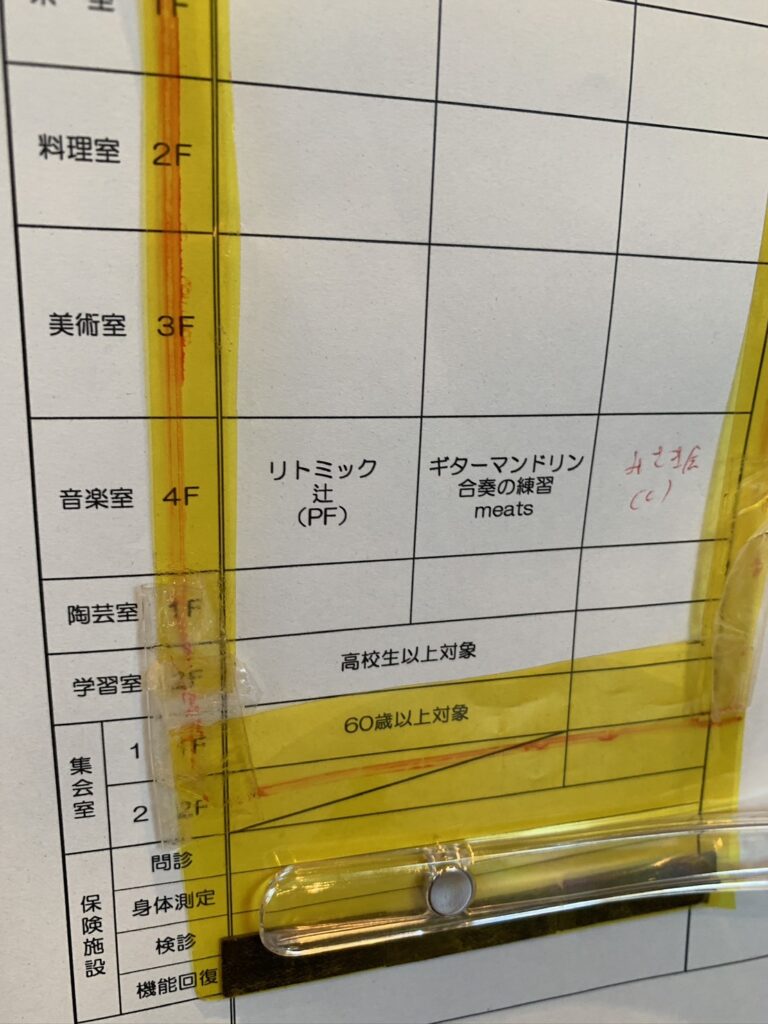 室 1F
料理室 2F
美術室 3F
音楽室 4F
リトミック
辻
(PF)
ギターマンドリン
合奏の練習
meats
陶芸室 1F
学習室 2F
高校生以上対象
集会室
1 1F
60歳以上対象
2 2F
保険施設
問診
身体測定
検診
機能回復